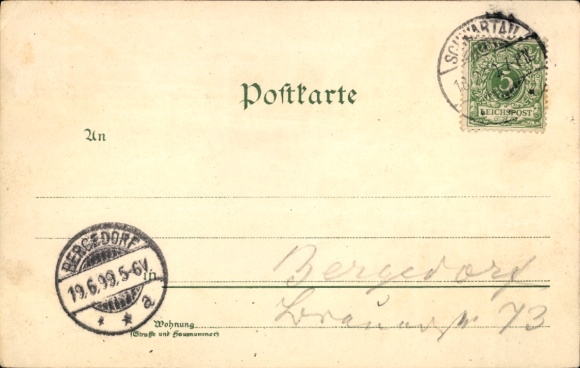 SCHWARTAU
5
REICHSPOST
Postkarte
An
BERGEDORF
19.6.99. 5-6V.
* * a.
in
Bergedorf
73
Wohnung
(Straße und Hausnummer)